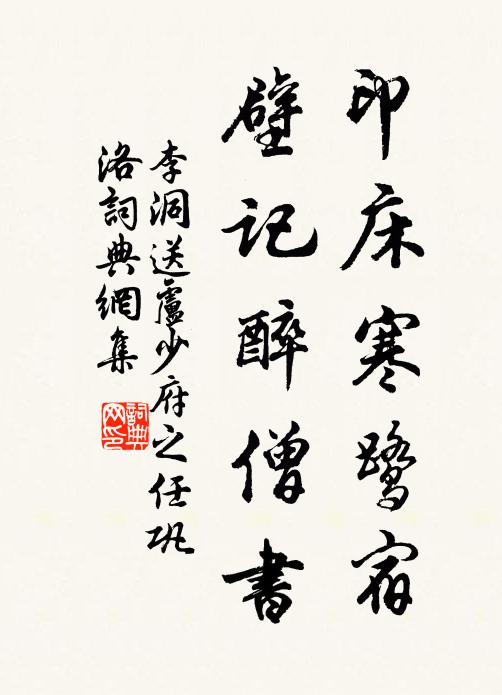 印床寒鹭宿
壁记醉僧書
李洞送盧少府之任巩
洛詞典網集
詞典网印